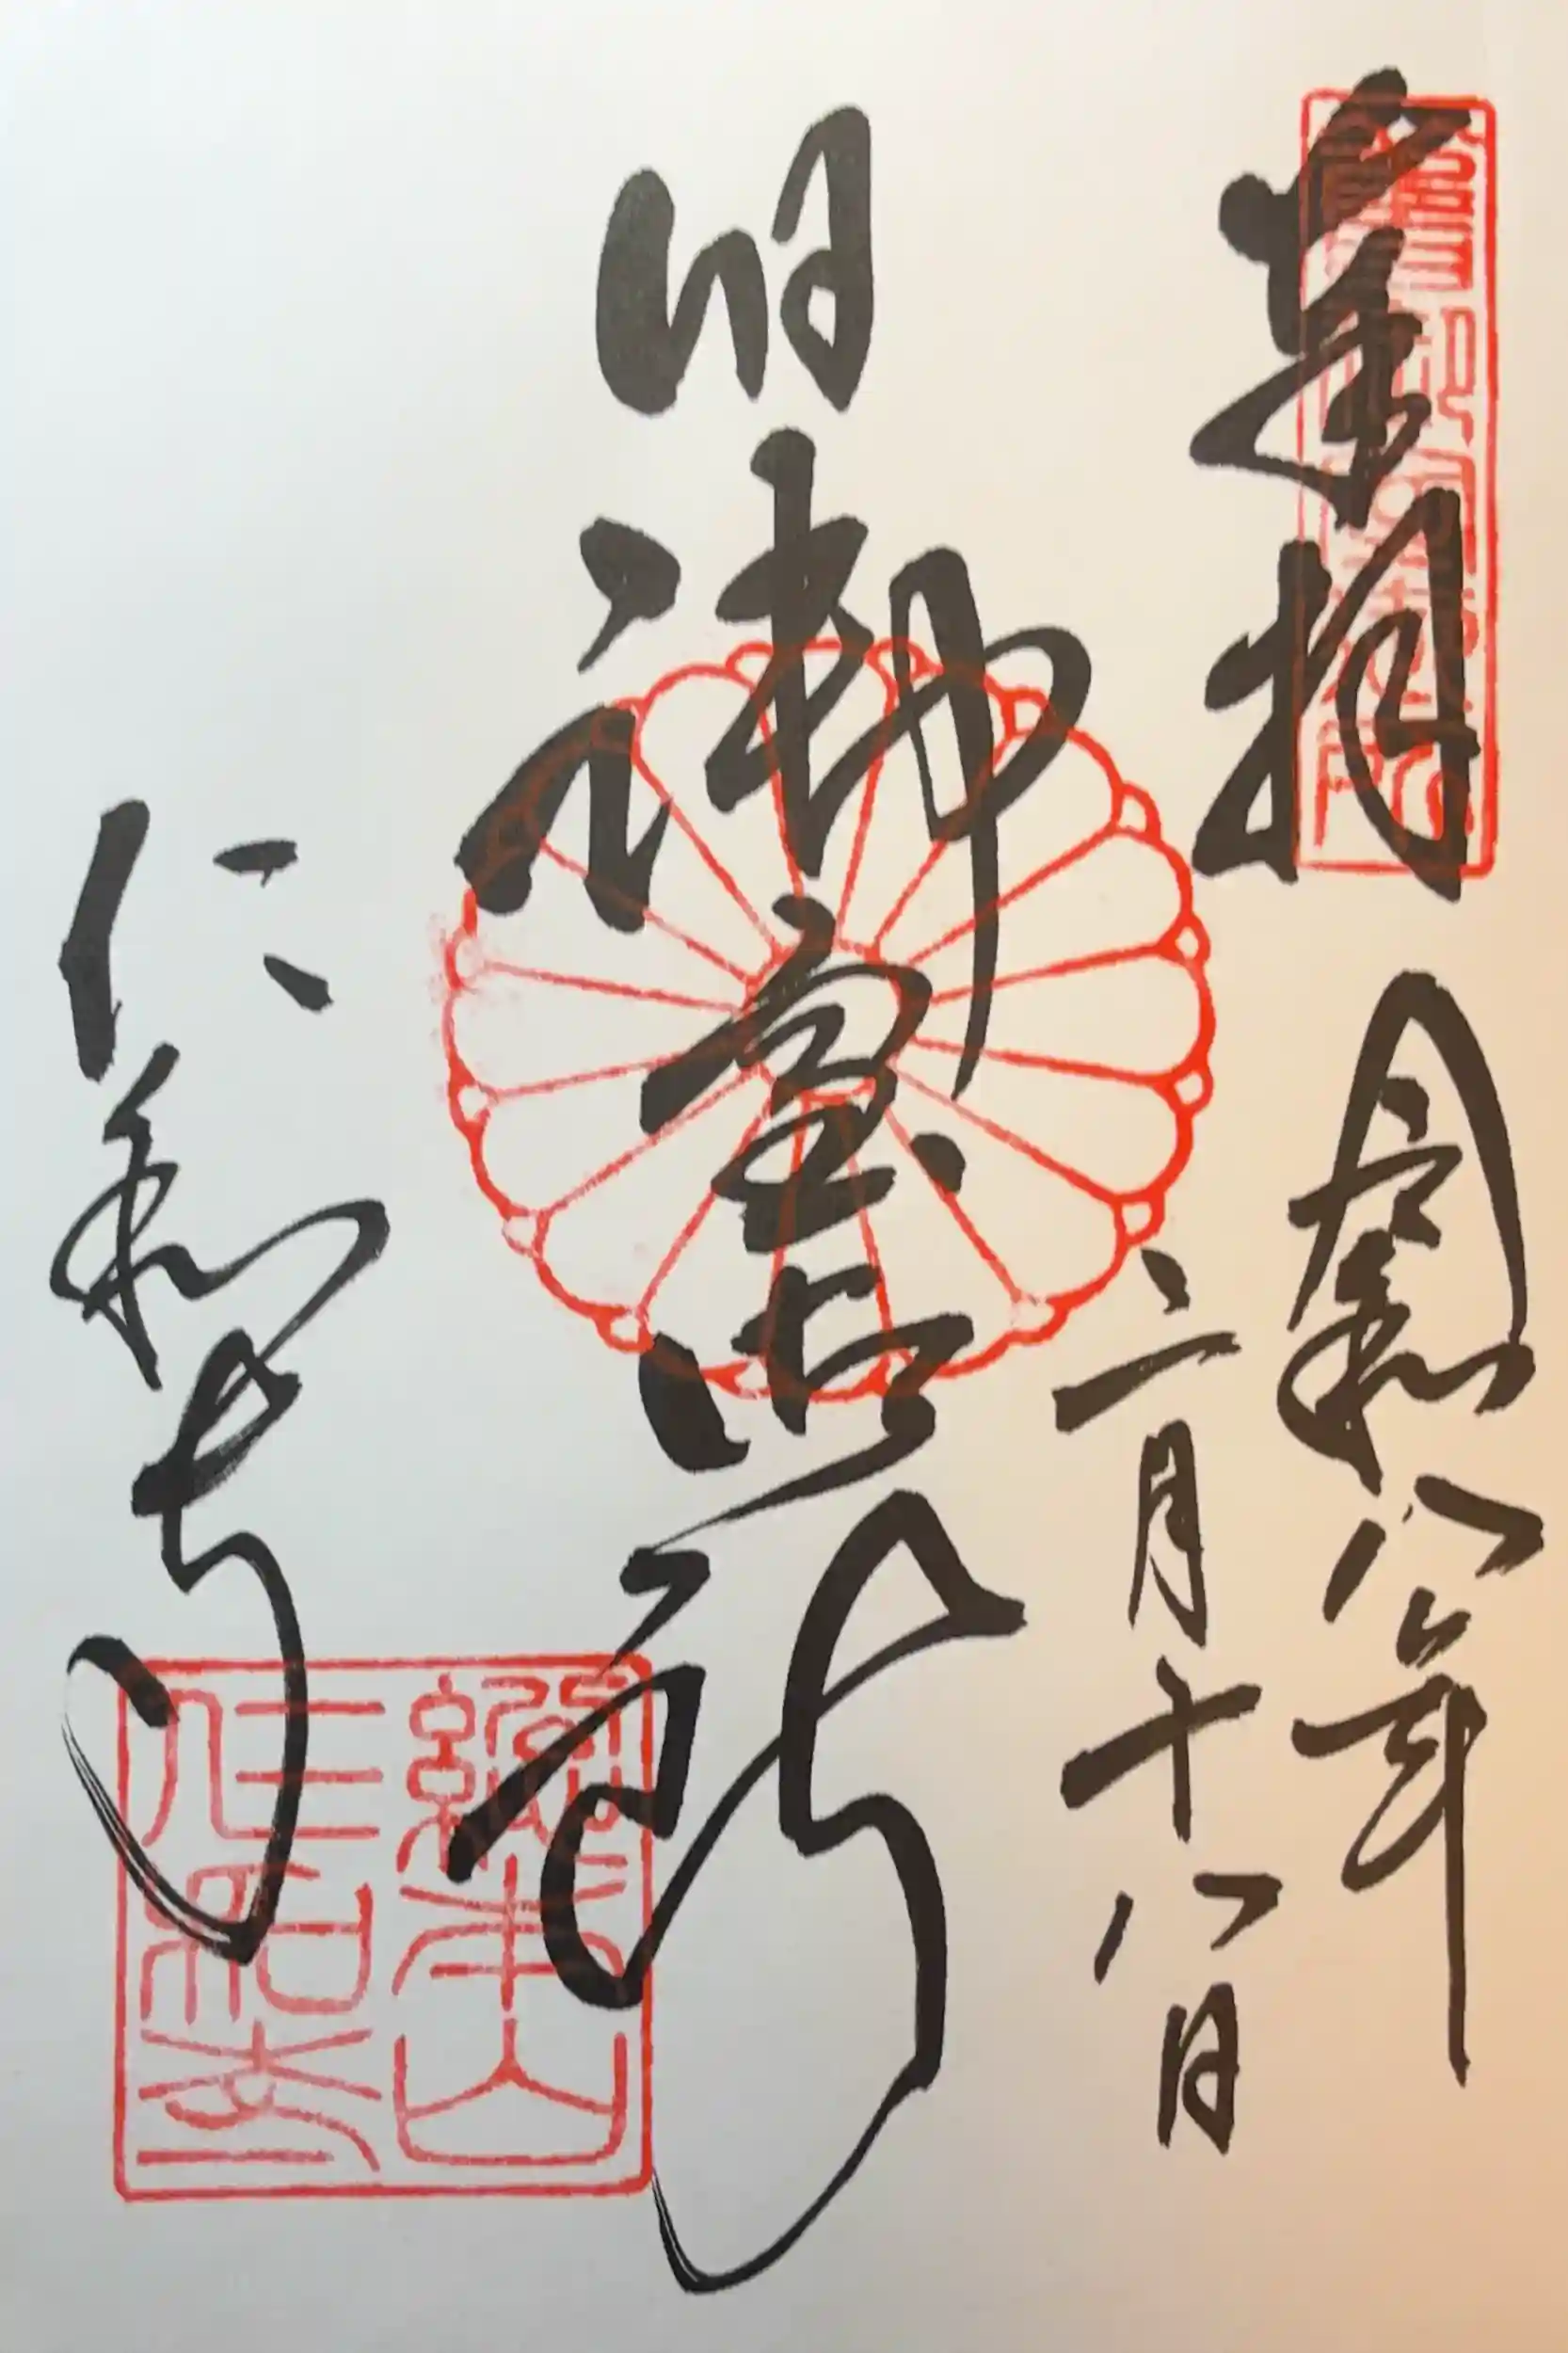 奉拝
令和八年
二月十八日
旧御室御所
仁和寺
舊御室御所
總本山
仁和寺